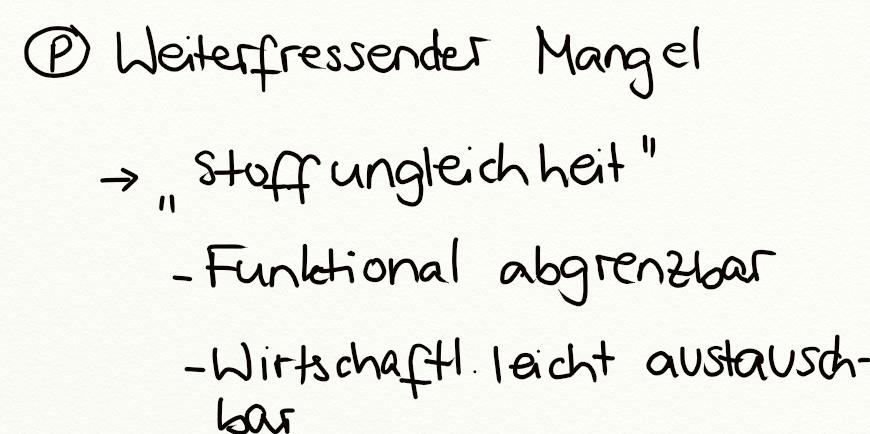 Ⓟ Weiterfressender Mangel
→ „Stoffungleichheit"
- Funktional abgrenzbar
- Wirtschaftl. leicht austausch-
bar